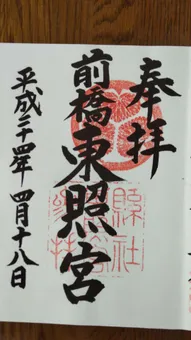 奉拝
前橋東照宮
平成二十四年四月十八日